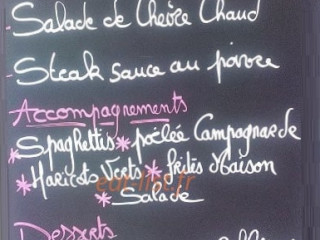 - Salade de Chèvre Chaud
- Steak sauce au poivre
Accompagnements
* Spaghettis * poêlée Campagnarde
* Haricots Verts * frites Maison
* Salade
Desserts